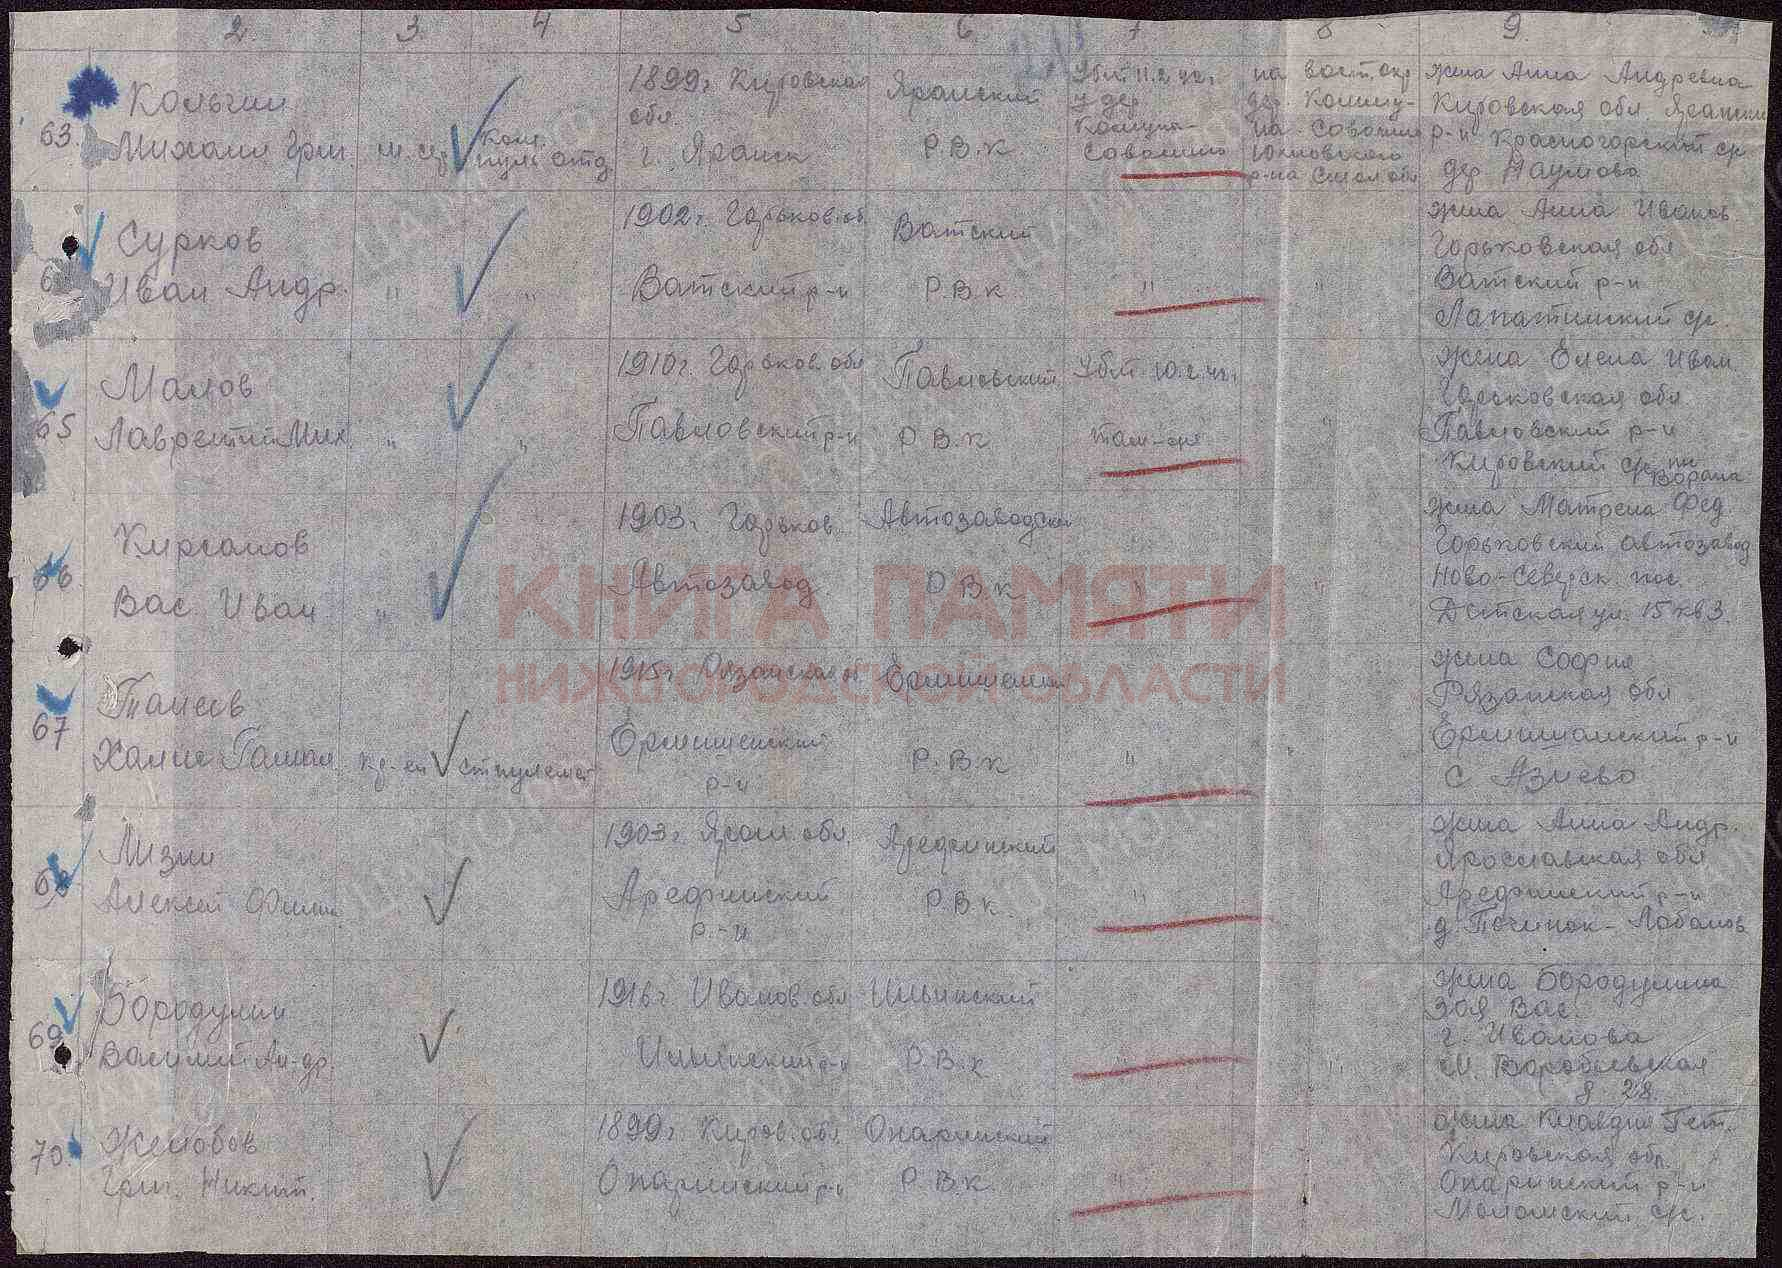 2. 3. 4 5 6 7 8 9.
63. Кольчин
Михаил Григ. м. сер. Ком. пул. отд
1899г Кировская обл
г. Яранск
Яранский
Р.В.К
Убит 11.2.42г.
у дер.
Савонино
на вост. окр
дер. Комму-
на - Савонино
Юхновского
р-на Смол обл
жена Анна Андреевна
Кировская обл.
р-н Красногорский ср
дер Наумово
Сурков
Иван Андр. " "
1902г. Горьков. об.
Ватский р-н
Ватский
Р.В.К
" "
жена Анна Иванов.
Горьковская обл
Ватский р-н
Лапатинский ср.
65 Малов
Лаврентий Мих. " "
1910г. Горьков. обл
Павловский р-н
Павловский
Р.В.К
Убит 10.2.42г.
там-же "
жена Елена Иван.
Горьковская обл.
Павловский р-н
Кировский ср
66. Кирсанов
Вас. Иван. "
1903г. Горьков.
Автозавод.
Автозаводский
Р.В.К
" "
жена Матрена Фед.
Горьковский автозавод
Ново-Северск. пос.
Детская ул. 15 кв 3.
67 Танеев
кр-ец
1915г Рязанская об.
Ермишенский
р-н
Ермишенский
Р.В.К
" "
жена София
Рязанская обл
Ермишанский р-н
с Азиево
68 Мизин
Алексей Филип.
1903г Яросл. обл.
Арефинский
р-н
Арефинский
Р.В.К.
"
жена Анна Андр.
Ярославская обл
Арефинский р-н
д. Починок-Лобанов
69 Бородулин
Василий Ан-др.
1916г. Иванов. обл
Ильинский р-н
Ильинский
Р.В.К
" "
жена Бородулина
Зоя Вас.
г. Иванова
М. Воробьевская
д 28.
70. Желобов
Григ. Никит.
1899г. Киров. обл.
Опаринский р-н
Опаринский
Р.В.К
"
жена Клавдия Пет.
Кировская обл.
Опаринский р-н
Моломский с/с.
КНИГА ПАМЯТИ
НИЖЕГОРОДСКОЙ ОБЛАСТИ